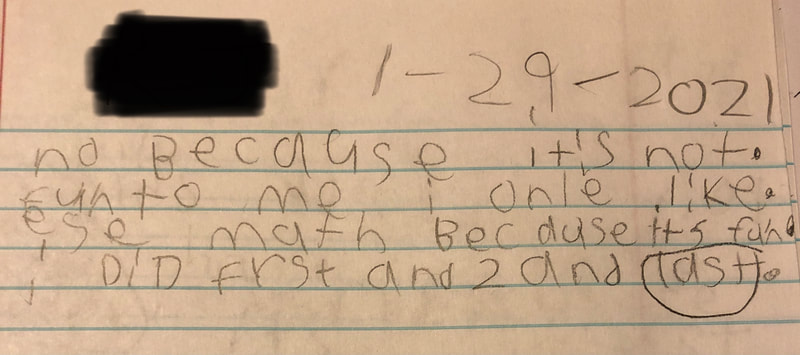 1-29-2021
no Because it's not.
fun to me i onle like.
ese math Because its fun.
i DiD frst and 2 and last.